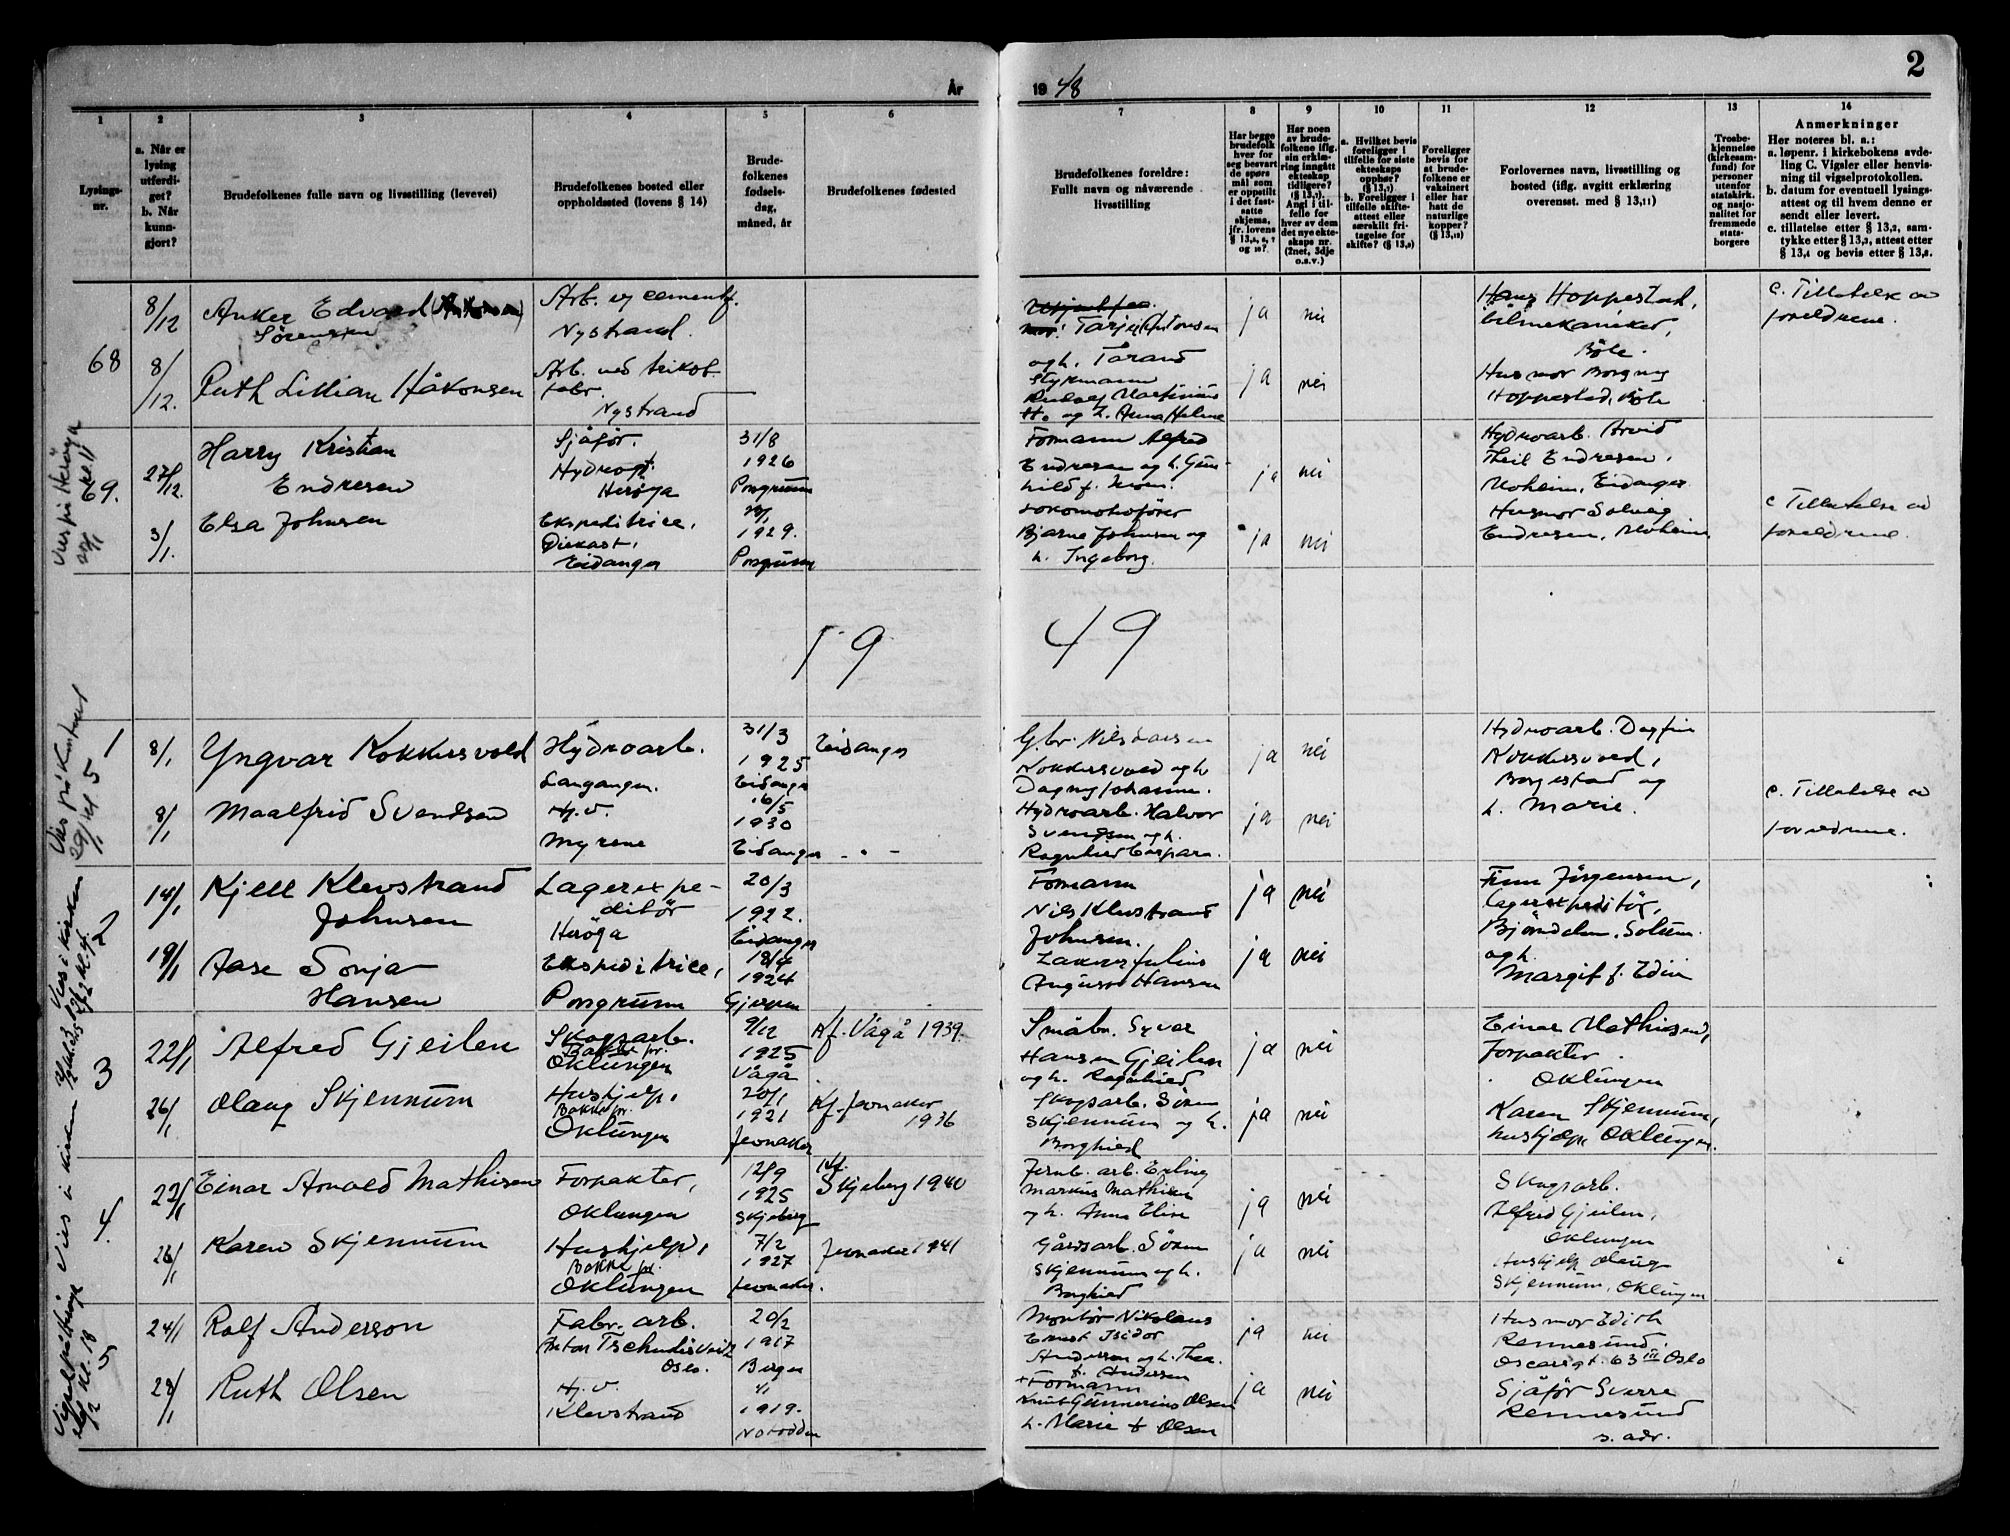 2
År
19 48
1
2
3
4
5
6
7
8
9
10
11
12
13
14
Lysings-
nr.
a. Når er
lysing
utferdi-
get?
b. Når
kunn-
gjort?
Brudefolkenes fulle navn og livsstilling (levevei)
Brudefolkenes bosted eller
oppholdssted (lovens § 14)
Brude-
folkenes
fødsels-
dag,
måned, år
Brudefolkenes fødested
Brudefolkenes foreldre:
Fullt navn og nåværende
livsstilling
Har begge
brudefolk
hver for
seg besvart
de spørs-
mål som
er oppstilt
i det fast-
satte
skjema,
jfr. lovens
Har noen
av brude-
folkene iflg.
sin erklæ-
ring inngått
ekteskap
tidligere?
Angi i til-
felle for
hver av dem
det nye ekte-
skaps nr.
(2net, 3dje
o.s.v.)
a. Hvilket bevis
foreligger i
tilfelle for siste
ekteskaps
opphør?
b. Foreligger i
tilfelle skifte-
attest eller
særskilt fri-
tagelse for
Foreligger
bevis for
at brude-
folkene er
vaksinert
eller har
hatt de
naturlige
kopper?
Forlovernes navn, livsstilling og
bosted (iflg. avgitt erklæring
overensst. med § 13,11)
Trosbe-
kjennelse
(kirkesam-
fund) for
personer
utenfor
statskirk.
og nasjo-
nalitet for
fremmede
stats-
borgere
Anmerkninger
Her noteres bl. a.:
a. løpenr. i kirkebokens avde-
ling C. Vigsler eller henvis-
ning til vigselprotokollen.
b. datum for eventuell lysings-
attest og til hvem denne er
sendt eller levert.
c. tillatelse etter § 13,2, sam-
tykke etter § 13,3, attest etter
§ 13,4 og bevis etter § 13,8.
68
8/12
Anker Edvard
Sørensen
Arb. v/ cementf.
Nystrand.
Tarjei Antonsen
og h. Tårand
ja
nei
Hans Hoppestad,
bilmekaniker,
Bøle.
c. Tillatelse av
foreldrene.
8/12.
Ruth Lillian Håkonsen
Arb. ved trikot.
fabr.
Nystrand
Styrmann
Rudolf Martinius
H. og h. Anna Helene
ja
nei
Husmor Borgny
Hoppestad, Bøle
69.
27/12.
Harry Kristian
Endresen
Sjåfør.
Herøya
31/8
1926
Porsgrunn
Formann Alfred
Endresen og h. Gun-
hild f. Moen.
ja
nei
Hydroarb. Arvid
Theil Endresen,
Moheim, Eidanger
3/1.
Elsa Johnsen
Ekspeditrice,
Eidanger
1929.
Porsgrunn
Lokomotivfører
Bjarne Johnsen og
h. Ingeborg.
ja
nei
Husmor Solveig
Endresen, Moheim
c Tillatelse av
foreldrene.
19
49
1
8/1
Yngvar Kokkersvold
Hydroarb.
Langangen.
31/3
1925
Eidanger
Eidanger
Gbr. Nils Larsen
Kokkersvold og h
Dagny Johanne.
ja
nei
Hydroarb. Dagfin
Kokkersvold,
Borgestad og
h. Marie.
8/1
Maalfrid Svendsen
Hj.v.
Myrene
16/5
1930
Eidanger
- " -
Hydroarb. Halvor
Svendsen og h.
Ragnhild Caspara.
ja
nei
c. Tillatelse av
foreldrene.
2
14/1
Kjell Klevstrand
Johnsen
Lagerekspe-
ditør
Herøya
20/3
1922.
Eidanger
Formann
Nils Klevstrand
Johnsen.
ja
nei
Finn Jørgensen,
lagerekspeditør,
Bjørndalen, Solum
og h.
Margit f. Edin
19/1
Aase Sonja
Hansen
Ekspeditrice,
Porsgrunn
18/4
1924
Gjerpen
August Hansen
ja
nei
3
22/1
Alfred Gjeilen
Skogsarb.
Bakke pr.
Oklungen
9/12
1925
Vågå
Kf. Vågå 1939.
Småbr. Syver
Hansen Gjeilen
og h. Ragnhild
ja
nei
Einar Mathisen,
Forpakter.
Oklungen
26/1
Olaug Skjennum
Hushjelp,
Bakke pr.
Oklungen
20/1
1921
Jevnaker
Kf. Jevnaker
1936
Skogsarb. Søren
Skjennum og h.
Borghild
ja
nei
Karen Skjennum,
hushjelp, Oklungen.
4.
22/1
Einar Arnold Mathisen
Forpakter,
Oklungen
12/9
1925
Skjeberg
Kf.
Skjeberg 1940
Jernb. arb. Erling
Markus Mathisen
og h. Anna Elise
ja
nei
Skogsarb.
Alfred Gjeilen,
Oklungen
26/1
Karen Skjennum
Hushjelp,
Bakke pr.
Oklungen
7/2
1927
Jevnaker.
Jevnaker 1941
Gårdsarb. Søren
Skjennum og h.
Borghild
ja
nei
Hushjelp Olaug
Skjennum, Oklungen
5
24/1
Rolf Anderson
Fabr. arb.
Anton Tschudisvei 12
Oslo.
20/2
1917
Bergen
Montør Nikolaus
Ernst Isidor
Anderson og h. Thea.
f. Andersen
ja
nei
Husmor Edith
Rennesund
Oscarsgt. 63 III Oslo
28/1
Ruth Olsen
Hj.v.
Klevstrand
1919.
Notodden
Formann
Knut Gunnerius Olsen
h. Marie f Olsen
ja
nei
Sjåfør Sverre
Rennesund
s. adr.